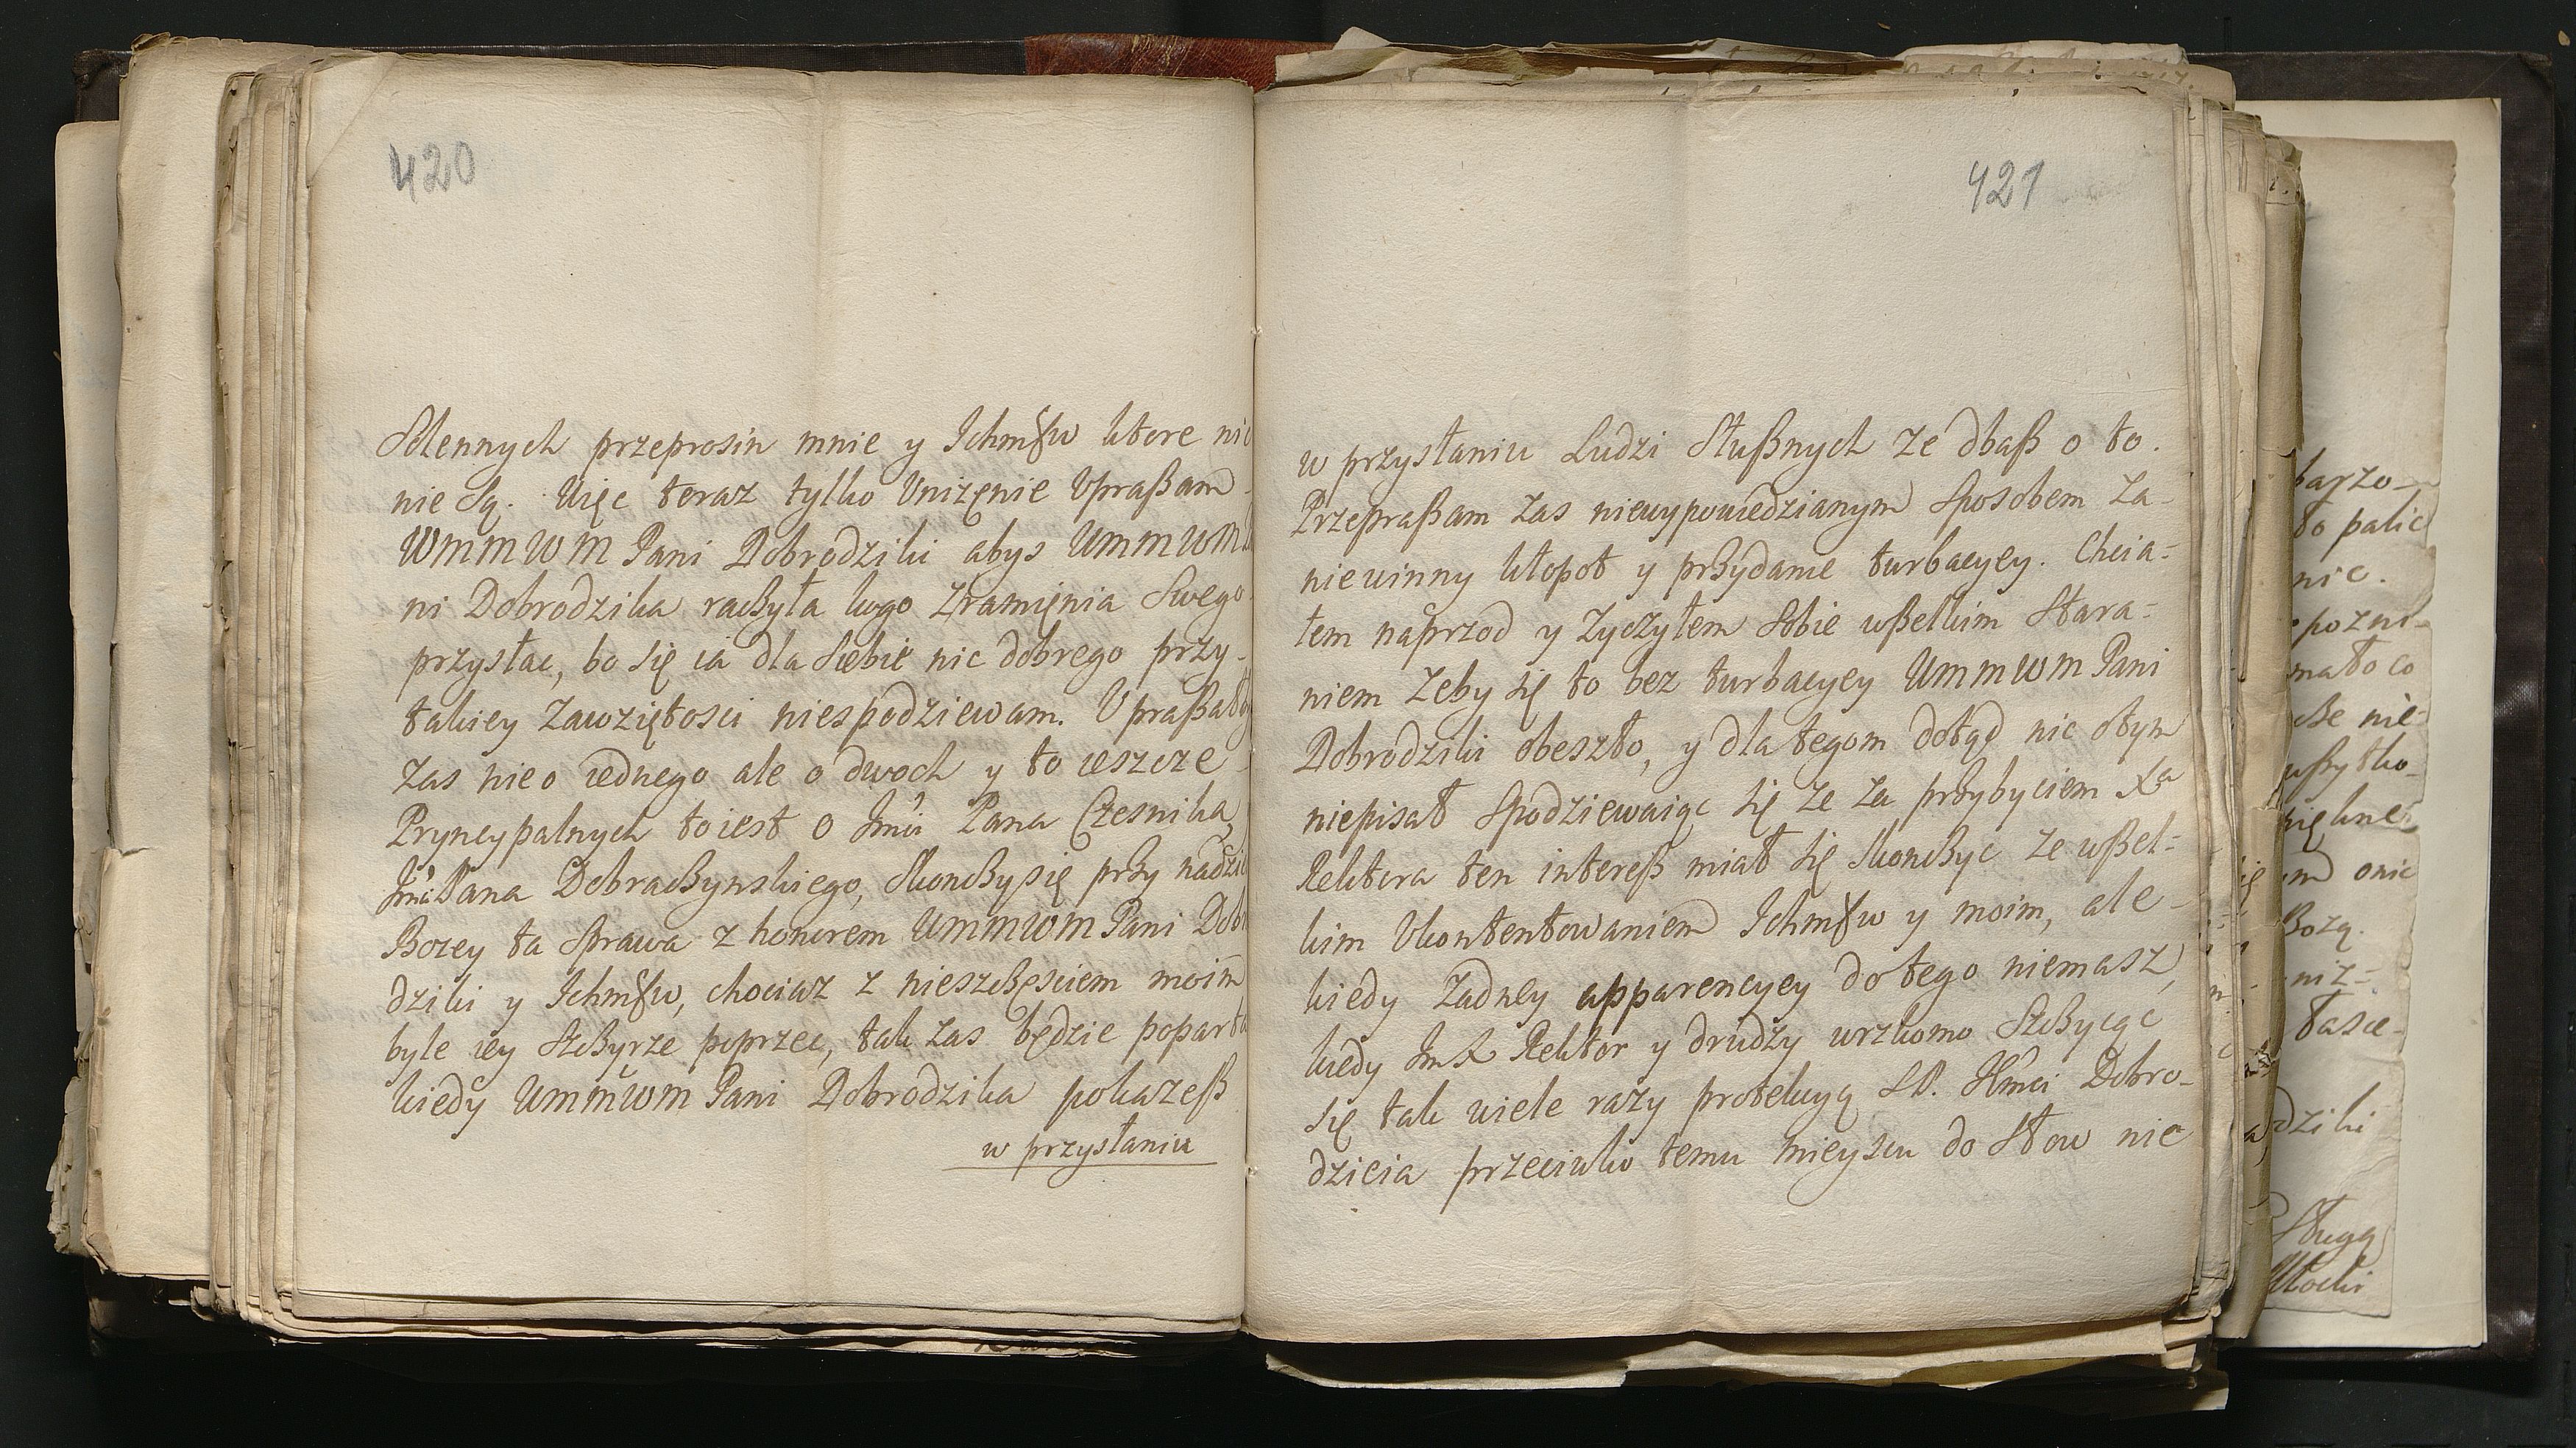 420
Solennych przeprosin mnie y Ichmśw ktore nic
nie Są. Więc teraz tylko Vniżęnie Vpraßam
WMMWM Pani Dobrodziki abys WMMWM
ni Dobrodzika raczyła kogo zramięnia Swego
przysłac, bo się ia dla Siebie nic dobrego przy
takiey zawziętosci niespodziewam. Vpraßał
zas nie o iednego ale o dwoch y to ieszcze
Pryncypalnych toiest o Jmci Pana Czesnika,
Jmci Pana Dobraczynskiego, Skonczy się przy nadzi
Bozey ta Sprawa z honorem WMMWM Pani Dobr
dziki y Ichmśw, chociaz z nieszczęsciem moim
byle iey Szczyrze poprzec, tak zas będzie popart
kiedy WMMWM Pani Dobrodzika pokazeß
w przysłaniu
421
w przysłaniu Ludzi Słußnych ze dbaß o to.
Przepraßam zas niewypowiedzianym Sposobem za
niewinny kłopot y przydanie turbacyey. Chcia=
łem naprzod y Zyczyłem Sobie wßelkim Stara=
niem zeby się to bez turbacyey WMMWM Pani
Dobrodziki obeszło, y dla tegom dotąd nic otym
niepisał Spodziewaiąc się ze za przybyciem Xa
Rektora ten intereß miał się Skonczyc ze wßel=
kim Vkontentowaniem Ichmśw y moim, ale
kiedy Zadney apparencyey do tego niemasz,
kiedy Jm X Rektor y drudzy wrzkomo Szczycąc
się tak wiele razy protekcyą
dzieia przeciwko temu mieyscu do Słow nie
barzo
to palic
nic.
mało co
onic
Bozą.
niz=
łasce
dziki
Sługą